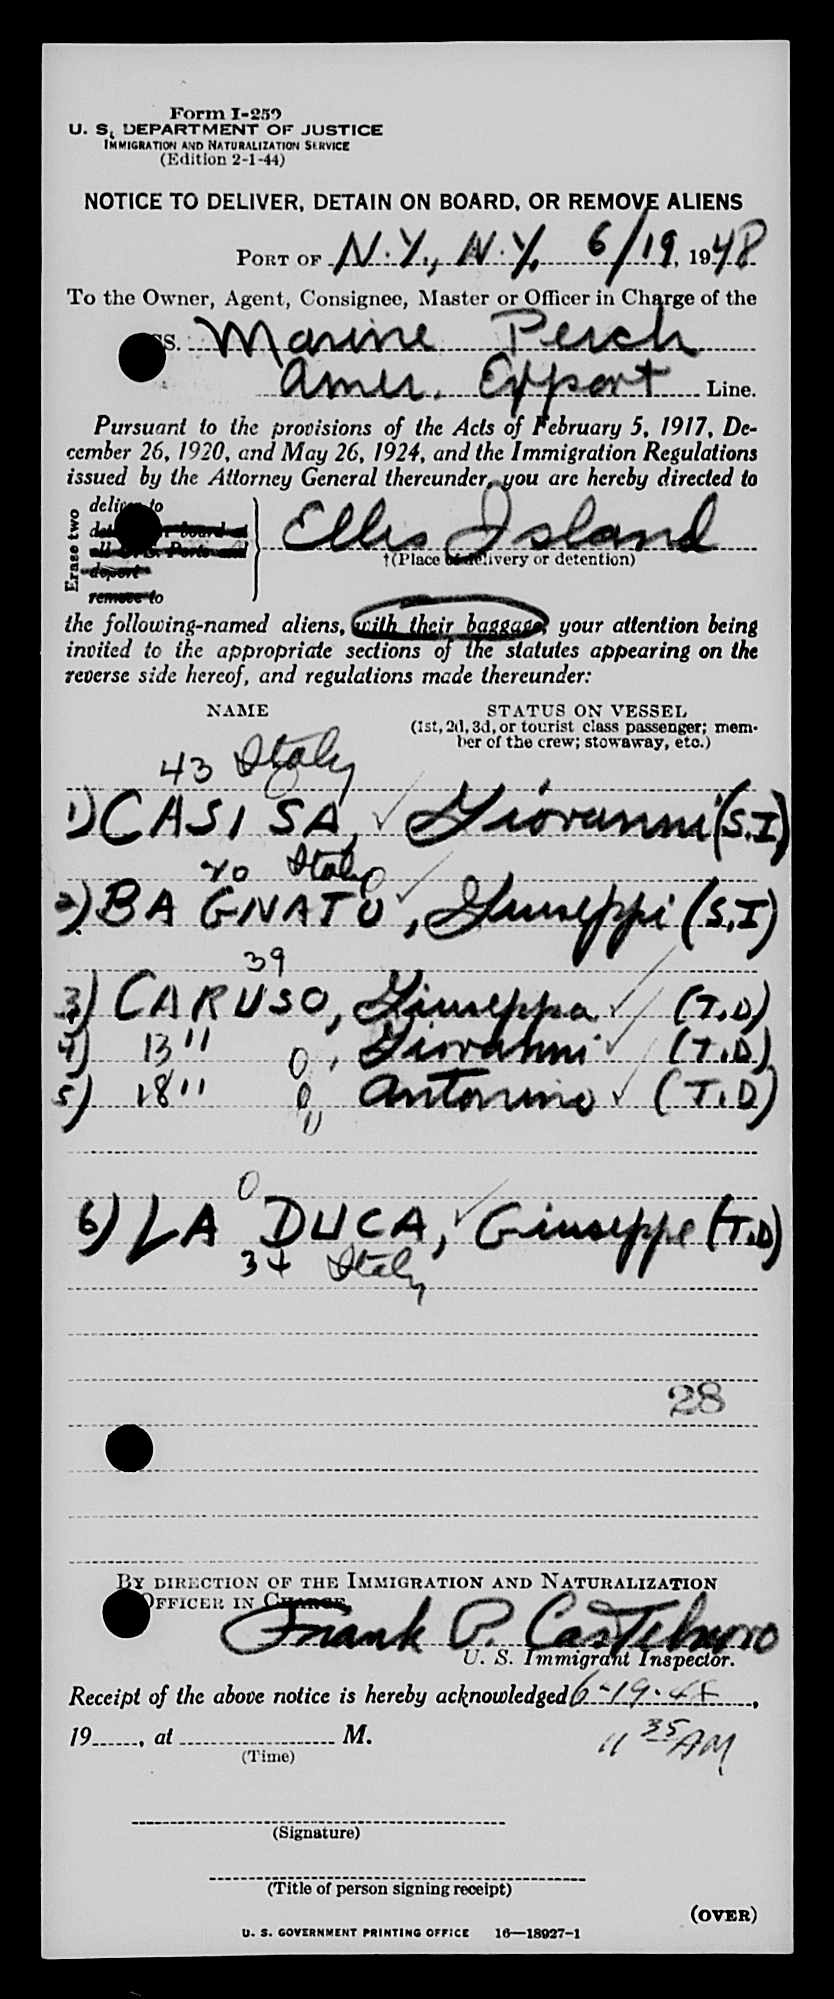 Form I-259
U. S. DEPARTMENT OF JUSTICE
IMMIGRATION AND NATURALIZATION SERVICE
(Edition 2-1-44)
NOTICE TO DELIVER, DETAIN ON BOARD, OR REMOVE ALIENS
PORT OF N.Y., N.Y. 6/19, 1948
To the Owner, Agent, Consignee, Master or Officer in Charge of the
SS. Marine Perch
Amer. Export Line.
Pursuant to the provisions of the Acts of February 5, 1917, De-
cember 26, 1920, and May 26, 1924, and the Immigration Regulations
issued by the Attorney General thereunder, you are hereby directed to
Erase two
deliver to
board at
all U. S. Ports and
deport
remove to
Ellis Island
†(Place of delivery or detention)
the following-named aliens, with their baggage, your attention being
invited to the appropriate sections of the statutes appearing on the
reverse side hereof, and regulations made thereunder:
NAME STATUS ON VESSEL
(1st, 2d, 3d, or tourist class passenger; mem-
ber of the crew; stowaway, etc.)
43 Italy
1) CASISA, Giovanni (S.I)
Italy
2) BAGNATO, Giuseppi (S.I)
39
3) CARUSO, Giuseppa (T.D)
4) 13 " , Giovanni (T.D)
5) 18 " " Antonino (T.D)
6) LA DUCA, Giuseppe (T.D)
34 Italy
28
BY DIRECTION OF THE IMMIGRATION AND NATURALIZATION
OFFICER IN CHARGE,
Frank P.
U. S. Immigrant Inspector.
Receipt of the above notice is hereby acknowledged 6-19-48,
19......, at .................... M.
11 35 AM
(Time)
(Signature)
(Title of person signing receipt)
(OVER)
U. S. GOVERNMENT PRINTING OFFICE 16—18927-1